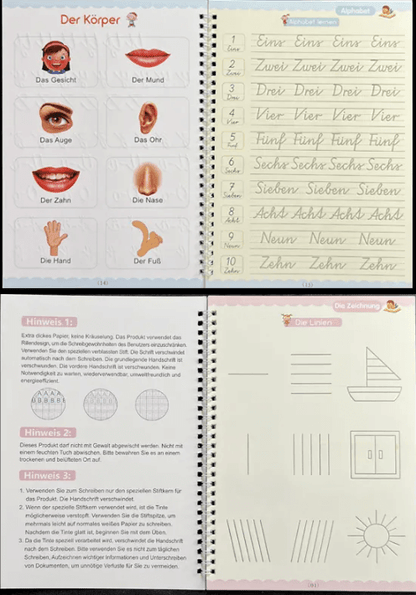 Der Körper
Das Gesicht
Der Mund
Das Auge
Das Ohr
Der Zahn
Die Nase
Die Hand
Der Fuß
(34)
Alphabet
Alphabet lernen
1 Eins Eins Eins Eins Eins
2 Zwei Zwei Zwei Zwei Zwei
3 Drei Drei Drei Drei Drei
4 Vier Vier Vier Vier Vier
5 Fünf Fünf Fünf Fünf Fünf
6 Sechs Sechs Sechs Sechs Sechs
7 Sieben Sieben Sieben Sieben
8 Acht Acht Acht Acht Acht
9 Neun Neun Neun Neun
10 Zehn Zehn Zehn Zehn
Hinweis 1:
Extra dickes Papier, keine Kräuselung. Das Produkt verwendet das
Rillendesign, um die Schreibgewohnheiten des Benutzers einzuschränken.
Verwenden Sie den speziellen verblassten Stift. Die Schrift verschwindet
automatisch nach dem Schreiben. Die grundlegende Handschrift ist
verschwunden. Die vordere Handschrift ist verschwunden. Keine
Notwendigkeit zu warten, wiederverwendbar, umweltfreundlich und
energieeffizient.
Hinweis 2:
Dieses Produkt darf nicht mit Gewalt abgewischt werden. Nicht mit
einem feuchten Tuch abwischen. Bitte bewahren Sie es an einem
trockenen und belüfteten Ort auf.
Hinweis 3:
1. Verwenden Sie zum Schreiben nur den speziellen Stiftkern für
das Produkt. Die Handschrift verschwindet.
2. Wenn der spezielle Stiftkern verwendet wird, ist die Tinte
möglicherweise verstopft. Verwenden Sie die Stiftspitze, um
mehrmals leicht auf normales weißes Papier zu schreiben.
Nachdem die Tinte glatt ist, beginnen Sie mit dem Üben.
3. Da die Tinte speziell verarbeitet wird, verschwindet die Handschrift
nach dem Schreiben. Bitte verwenden Sie es nicht zum täglichen
Schreiben, Aufzeichnen wichtiger Informationen und Unterschreiben
von Dokumenten, um unnötige Verluste für Sie zu vermeiden.
Die Zeichnung
Die Linien